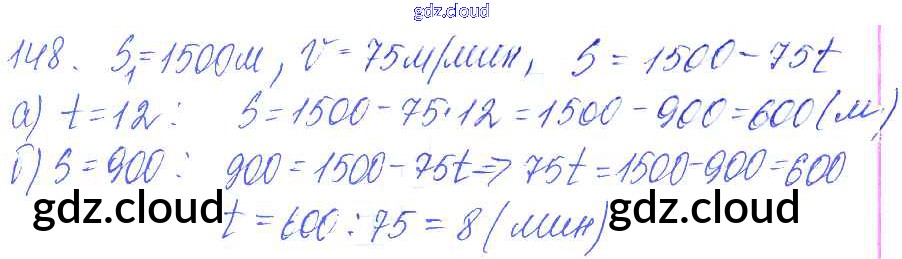 gdz.cloud
148. S₁=1500м, V=75м/мин, S=1500-75t
а) t=12: S=1500-75·12=1500-900=600(м)
б) S=900: 900=1500-75t⇒75t=1500-900=600
gdz.cloud gdz.cloud
t=600:75=8(мин)